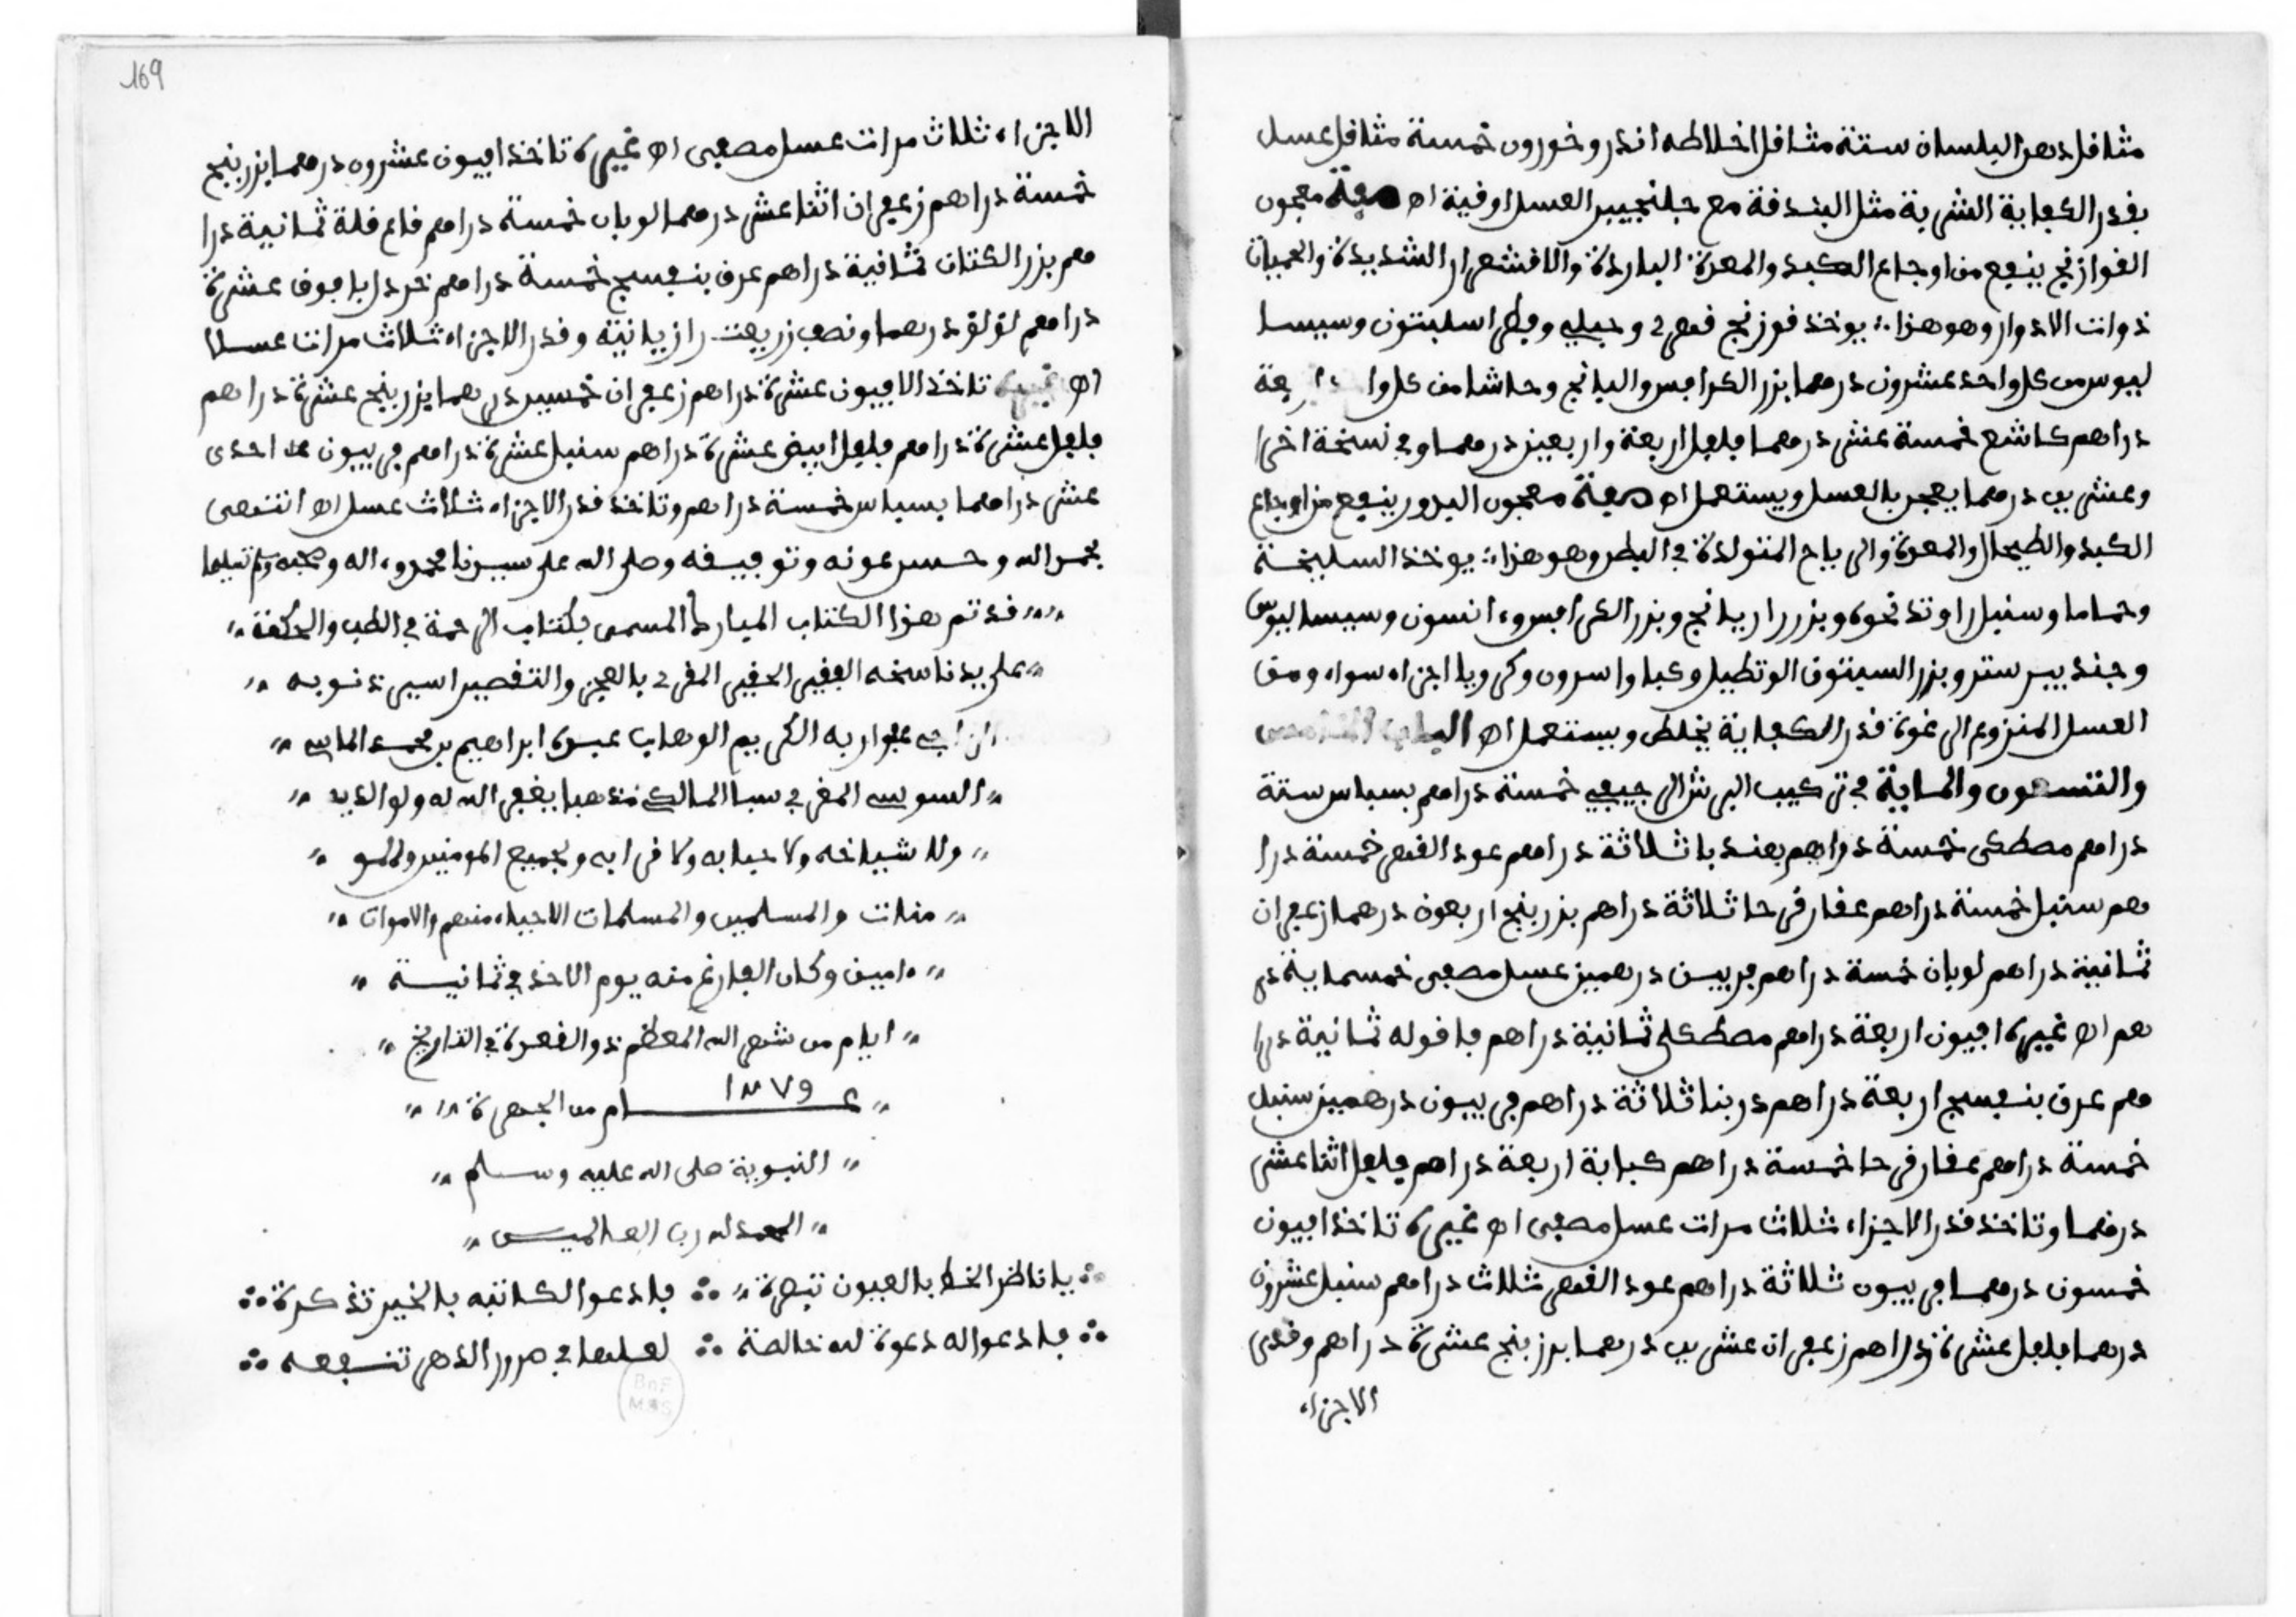 مثافل دهن البلسان ستة مثافل اخلاطه اندر وخورون خمسة مثافل عسل
بفدر الكفاية الشربة مثل البندفة مع جلنجبين العسل اوفية اه صفة معجون
الفوازنج ينفع من اوجاع الكبد والمعدة الباردة والافشعرار الشديدة والحميات
ذوات الادوار وهو هذا يوخذ فوزنج فهري وجبلي وفطراسليتون وسيسا
ليوس من كل واحد عشرون درهما بزر الكرافس واليانج وحاشا من كل وا اربعة
دراهم كاشع خمسة عشر درهما فلفل اربعة واربعين درهما وفي نسخة اخرا
وعشرين درهما يعجن بالعسل ويستعمل اه صفة معجون البدور ينفع من اوجاع
الكبد والطيحال والمعدة والرياح المتولدة في البطن وهو هذا يوخذ السليخة
وحماما وسنبل راوند نحوه وبزر رازيانج وبزر الكرافس وءانسون وسيسا ليوس
وجند بيرستر وبزر السينوق الوتطيل وعبا واسرون وكرويا اجزاء سواء ومن
العسل المنزوع الرغوة فدر الكفاية يخلط ويستعمل اه الباب الخامس
والتسعون والماية في تركيب البرشالي جيعي خمسة دراهم بسباس ستة
دراهم مصطكى خمسة دراهم بعند با ثلاثة دراهم عود الفهر خمسة درا
هم سنبل خمسة دراهم عفار فرحا ثلاثة دراهم بزر بنج اربعون درهما زعفران
ثمانية دراهم لوبان خمسة دراهم فربيبن درهمين عسل مصفى خمسماية در
هم اه غيره افيون اربعة دراهم مصطكى ثمانية دراهم فافوله ثمانية درا
هم عرق بنفسج اربعة دراهم دربنا ثلاثة دراهم فربيون درهمين سنبل
خمسة دراهم عفار فرحا خمسة دراهم كبابة اربعة دراهم فلفل اثنا عشر
درهما وتاخذ فدر الاجزاء ثلاث مرات عسل مصفى اه غيره تاخذ افيون
خمسون درهما فربيون ثلاثة دراهم عود الفهر ثلاث دراهم سنبل عشرون
درهما فلفل عشرة دراهم زعفران عشرين درهما بزر بنج عشرة دراهم وفدر
الاجزاء
169
الاجزاء ثلاث مرات عسل مصفى اه غيره تاخذ افيون عشرون درهما بزر بنج
خمسة دراهم زعفران اثنا عشر درهما لوبان خمسة دراهم فاع فلة ثمانية درا
هم بزر الكتان ثمانية دراهم عرف بنفسج خمسة دراهم خردل يافوف عشرة
دراهم لؤلؤ درهما ونصف زريعت رازيانية وفدر الاجزاء ثلاث مرات عسلا
اه غيره تاخذ الافيون عشرة دراهم زعفران خمسين درهما بزر بنج عشرة دراهم
فلفل عشرة دراهم فلفل ابيض عشرة دراهم سنبل عشرة دراهم فربيون احدى
عشر درهما بسباس خمسة دراهم وتاخذ فدر الاجزاء ثلاث عسل اه انتهى
بحمد الله وحسن عونه وتوفيفه وصلى الله على سيدنا محمد وءاله وصحبه وسلم تسليما
فد تم هذا الكتاب المبارك المسمى بكتاب الرحمة في الطب والحكمة
على يد ناسخه الففير الحفير المفر بالعجز والتفصير اسير ذنوبه
الراجي عفو ربه الكريم الوهاب عبده ابراهيم بن محمد الماسي
السوسي المغربي نسبا المالكي مذهبا يغفر الله له ولوالديه
ولاشياخه ولاحبابه ولافرابه ولجميع المومنين والمو
منات والمسلمين والمسلمات الاحياء منهم والاموات
ءامين وكان الفارغ منه يوم الاحد في ثمانية
ايام من شهر الله المعظم ذو الفعدة في التاريخ
عام ١٢٧٩ من الهجرة
النبوية صلى الله عليه وسلم
الحمد لله رب العالمين
يا ناظر الخط بالعيون تبصره فادعوا لكاتبه بالخير تذكره
فادعوا له دعوة لله خالصة لعلها في مرور الدهر تنفعه
BnF
MSS